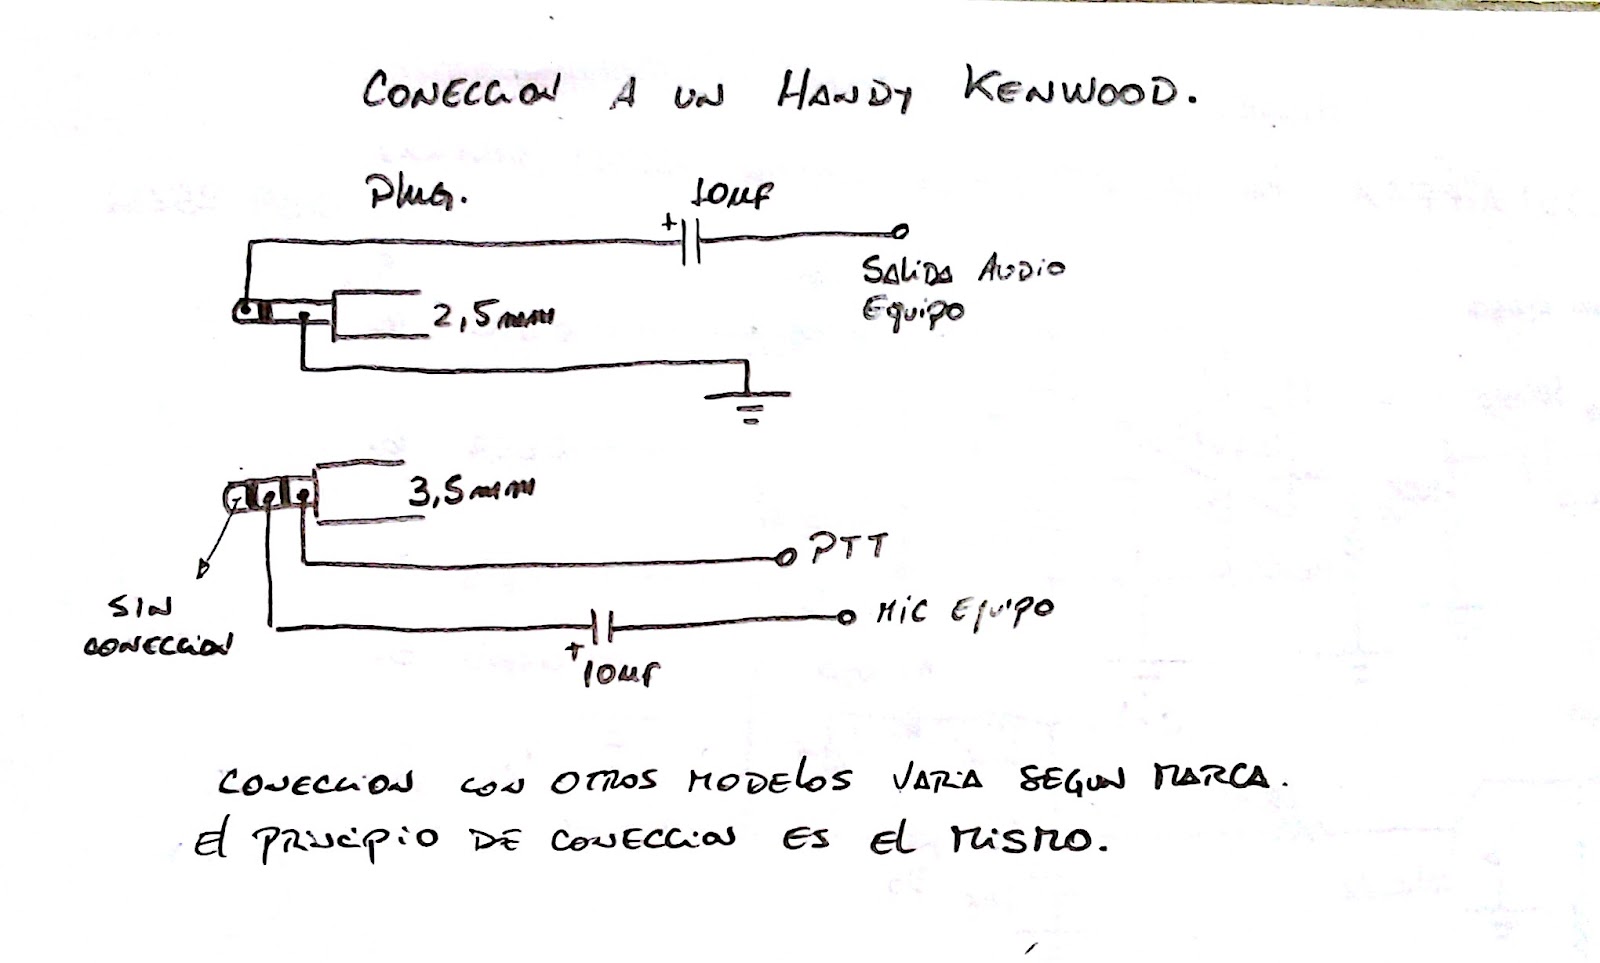 CONECCION A UN HANDY KENWOOD.
Plug.
+
10µf
SALIDA AUDIO
Equipo
2,5mm
3,5mm
PTT
SIN
CONECCION
MIC Equipo
+
10µf
CONECCION CON OTROS MODELOS VARIA SEGUN MARCA.
El PRINCIPIO DE CONECCION ES El MISMO.